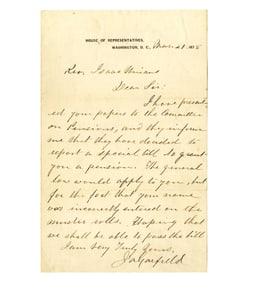 HOUSE OF REPRESENTATIVES,
WASHINGTON, D. C.,
Rev. Isaac
Dear Sir:
I have present
ed your papers to the Committee
on Pensions, and they inform
me that they have decided to
report a special bill to grant
you a pension. The general
law would apply to you, but
for the fact that your name
was incorrectly entered on the
muster rolls. Hoping that
we shall be able to pass the bill
I am Very Truly Yours,
J. A. Garfield